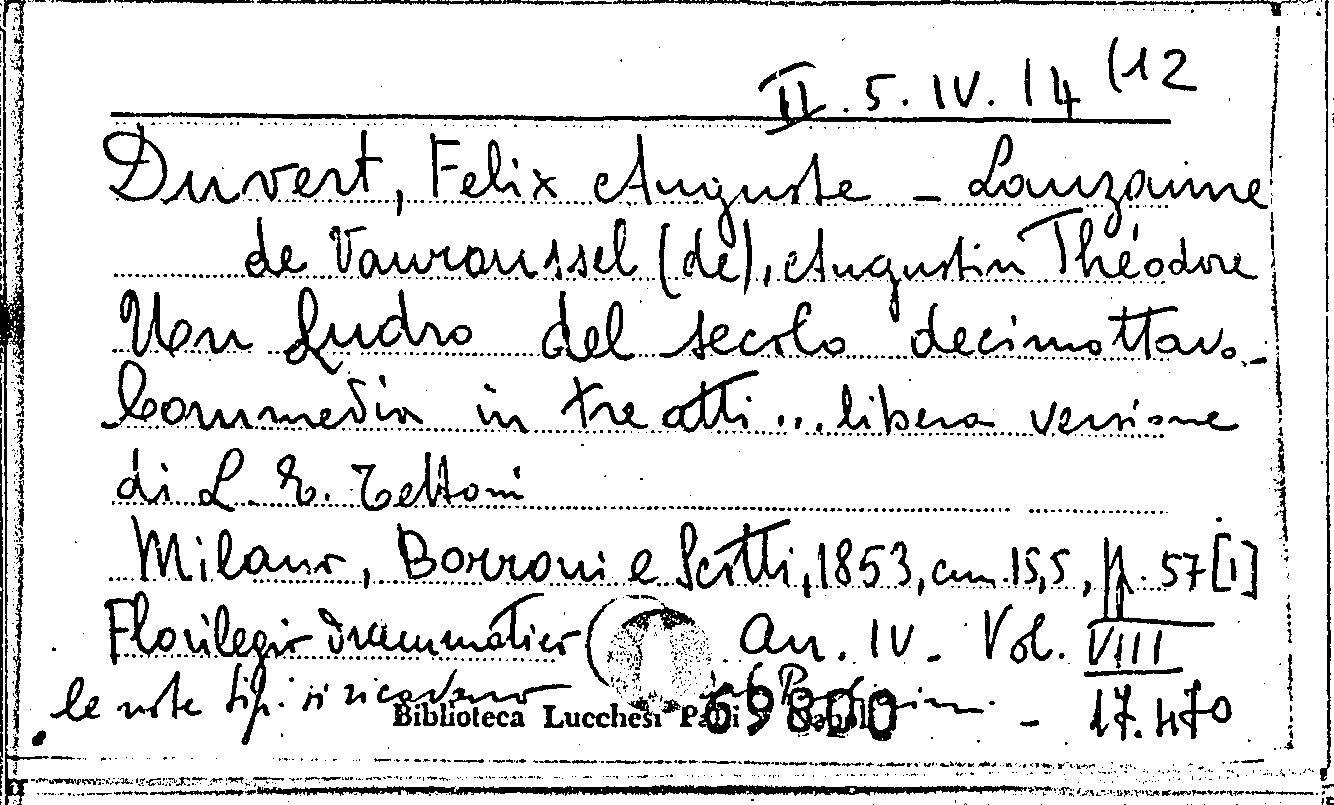 II. 5. IV. 14 (12
Duvert, Felix Auguste - Lauzanne
de Vauroussel (de), Augustin Théodore
Un Ludro del secolo decimottavo.-
Commedia in tre atti... libera versione
di L. E. Tettoni
Milano, Borroni e Scotti, 1853, cm. 15,5, pp. 57 [1]
Florilegio drammatico An. IV - Vol. VIII
le note tip. si ricavano - 17.470
Biblioteca Lucchesi Palli 69800 Napoli